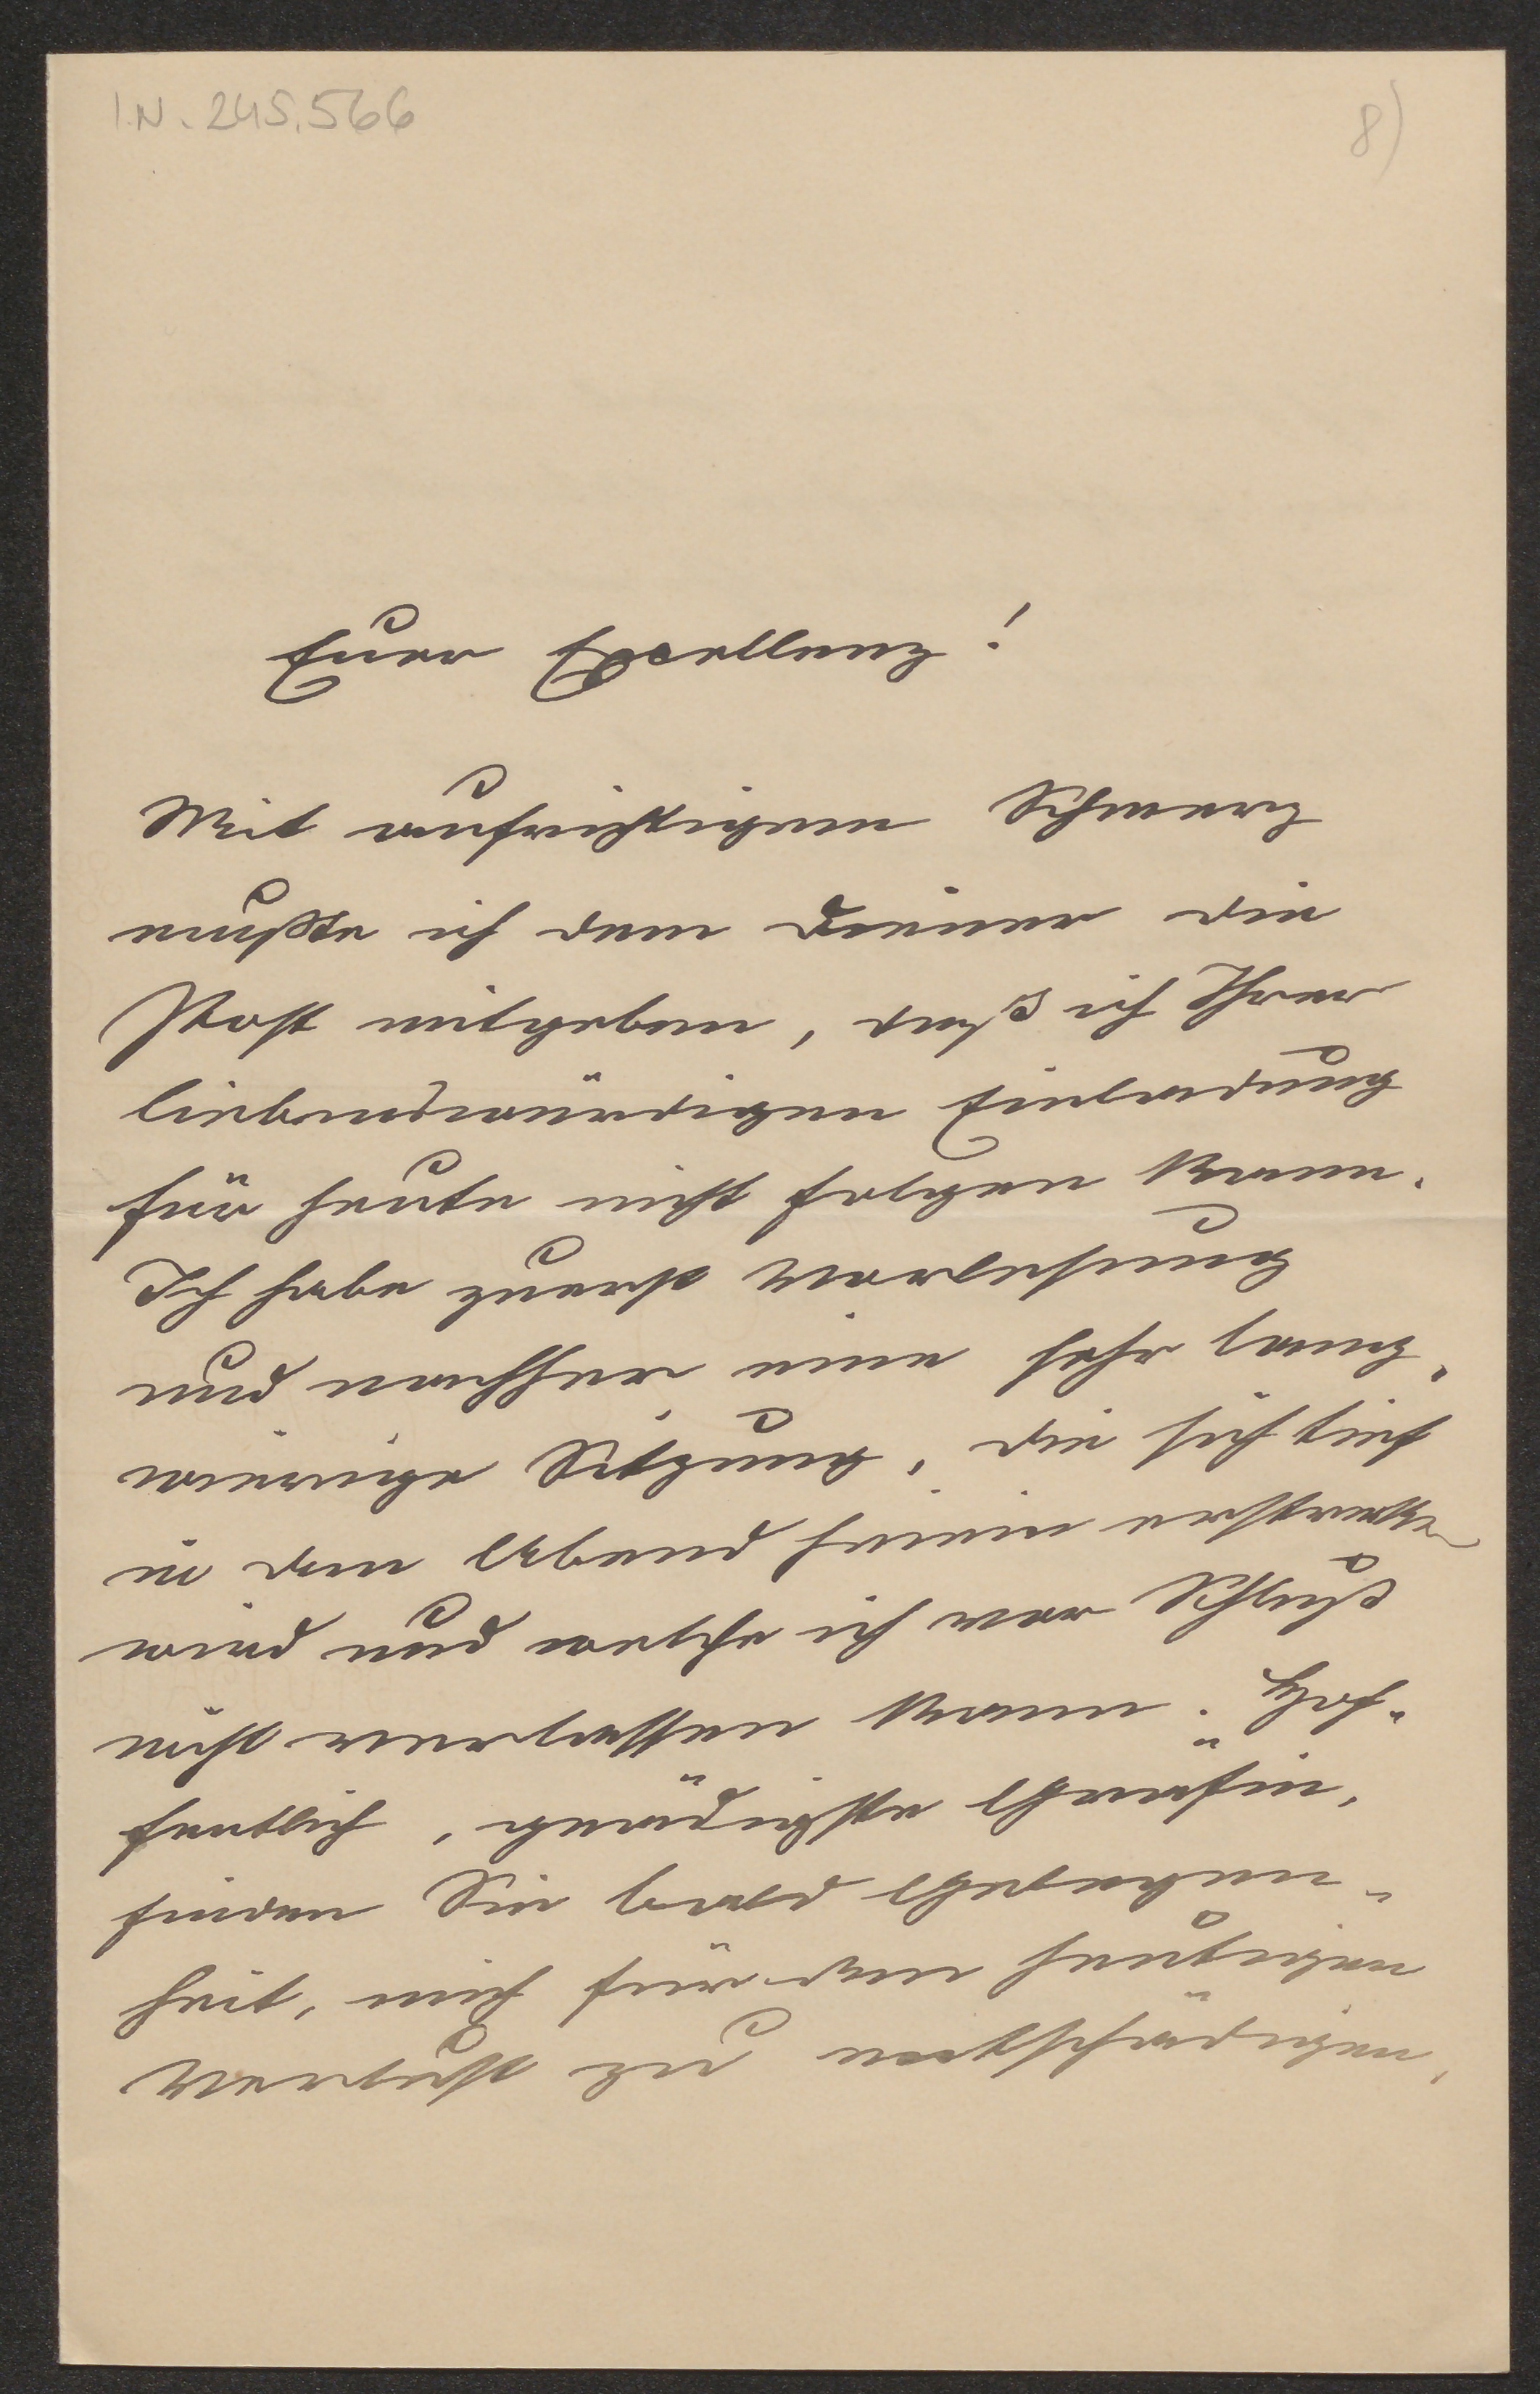 I.N. 245.566
8)
Euer Excellenz!
Mit aufrichtigem Schmerz
mußte ich dem Diener die
Post mitgeben, daß ich Ihrer
liebenswürdigen Einladung
für heute nicht folgen kann.
Ich habe zuerst Vorlesung
und nachher eine sehr lang-
wierige Sitzung, die sich tief
in den Abend hinein erstrecken
wird und welche ich vor Schluß
nicht verlassen kann. Hof-
fentlich, gnädigste Gräfin,
finden Sie bald Gelegen-
heit, mich für den heutigen
Verlust zu entschädigen,